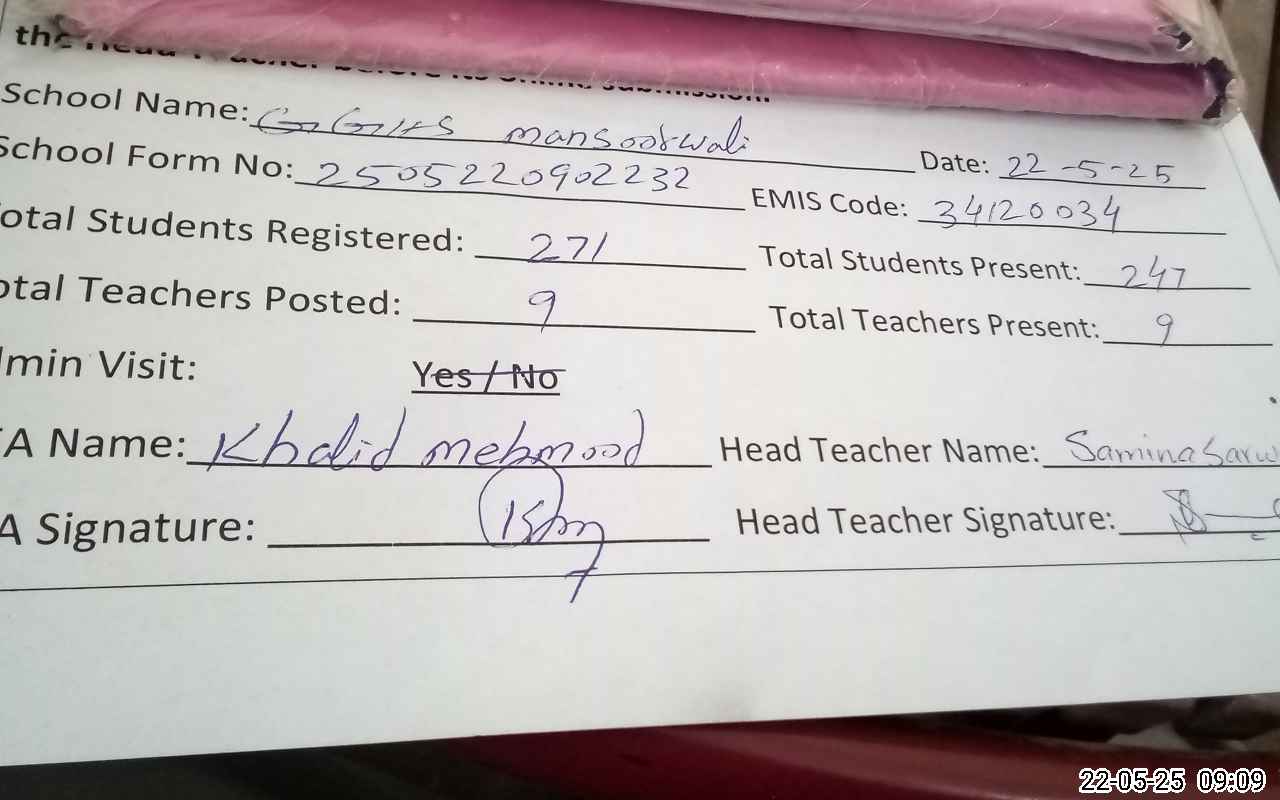 the Head Teacher before its online submission.
School Name: GGHS mansoorwali
Date: 22-5-25
School Form No: 2505220902232
EMIS Code: 34120034
otal Students Registered: 271
Total Students Present: 247
otal Teachers Posted: 9
Total Teachers Present: 9
dmin Visit: Yes / No
A Name: Khalid mehmood
Head Teacher Name: Samina Sarw
A Signature:
Head Teacher Signature:
22-05-25 09:09